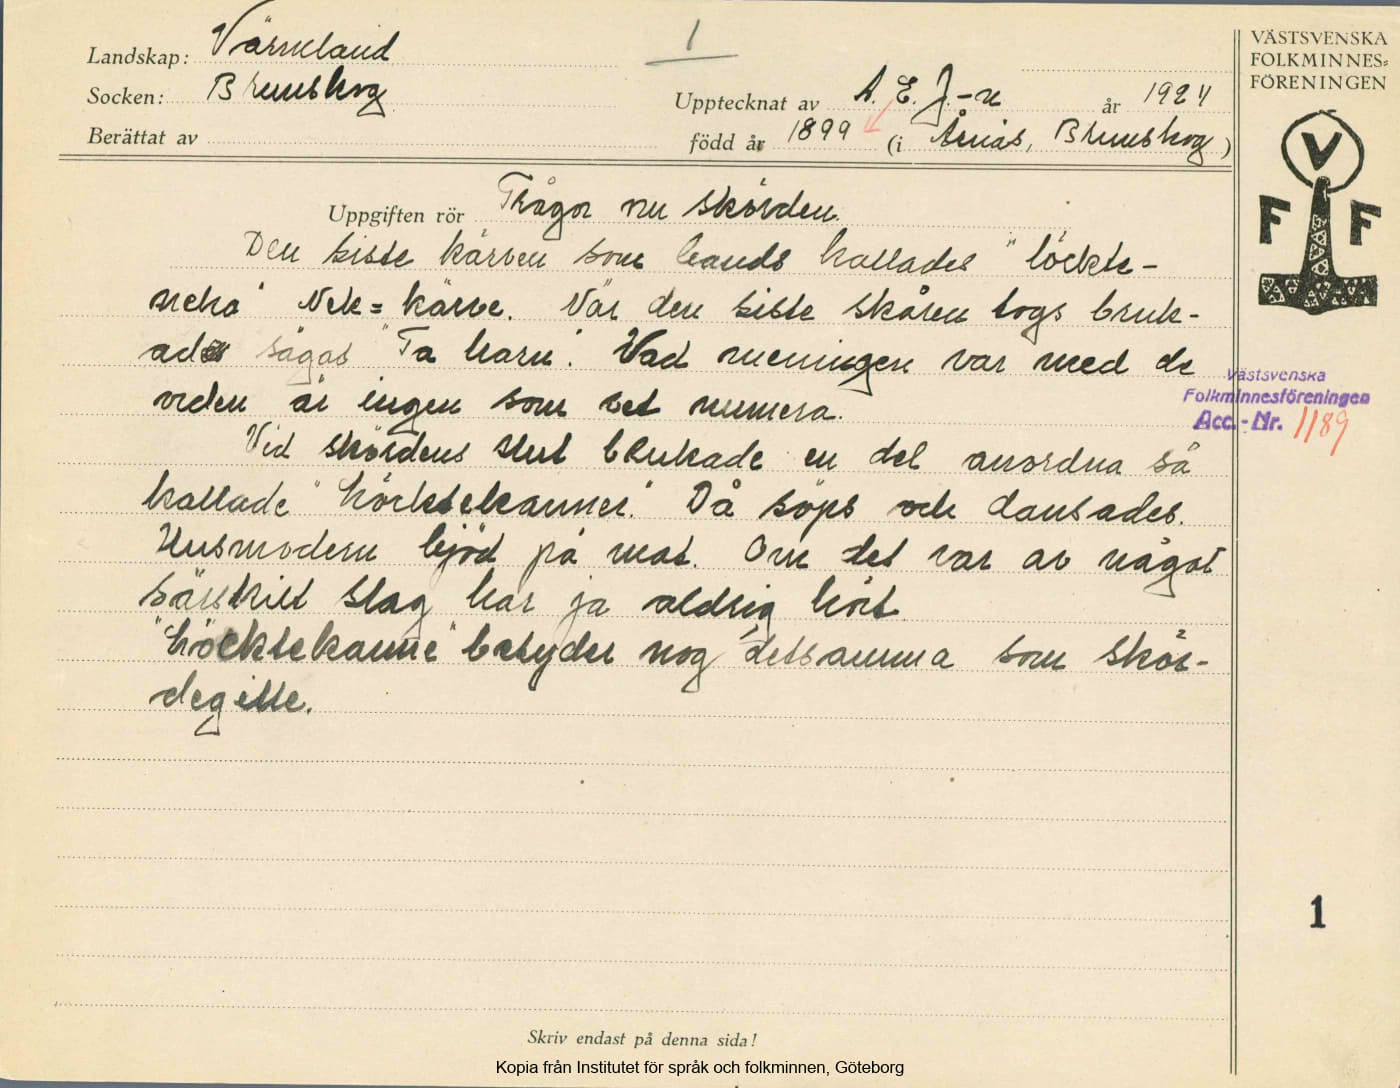 1
Landskap: Värmland
Socken: Brunskog
Berättat av
Upptecknat av A. E. J.-n år 1924
född år 1899 (i Årnäs, Brunskog)
VÄSTSVENSKA
FOLKMINNES=
FÖRENINGEN
V
F F
Uppgiften rör Frågor nu skörden.
Den siste kärven som bands kallades "löckte-
neka" Nek = kärve. När den siste skåren togs bruk-
ades sägas "Ta harn". Vad meningen var med de
orden är ingen som vet numera.
Vid skördens slut brukade en del anordna så
kallade "höcktekanner." Då söps och dansades.
Husmodern bjöd på mat. Om det var av något
särskilt slag har ja aldrig hört.
"höcktekanne" betyder nog detsamma som skör-
degille.
Västsvenska
Folkminnesföreningen
Acc.-Nr. 1189
1
Skriv endast på denna sida!
Kopia från Institutet för språk och folkminnen, Göteborg